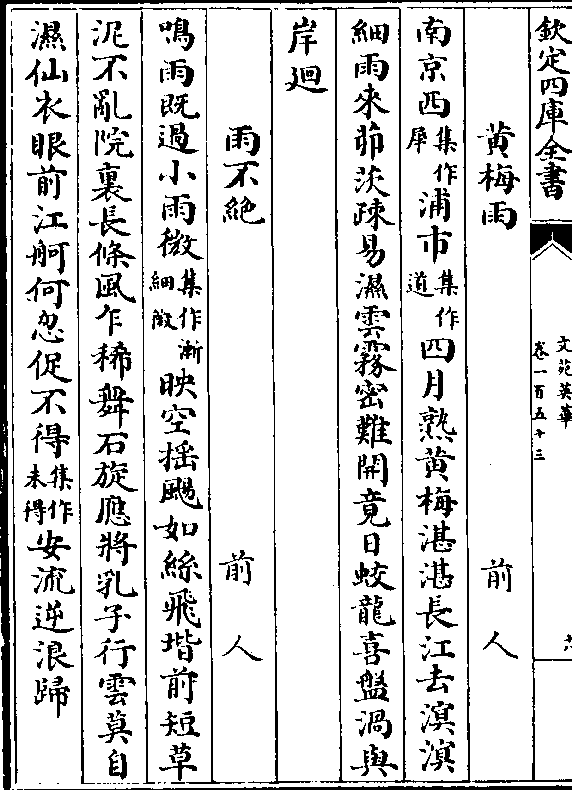 欽定四庫全書
文苑英華
卷一百五十三
黄梅雨 前人
南京西集作犀浦市集作道四月熟黄梅湛湛長江去溟溟
細雨來茆茨疎易濕雲霧密難開竟日蛟龍喜盤渦與
岸廻
雨不絶 前人
鳴雨既過小雨微集作漸細微映空揺颺如絲飛堦前短草
泥不亂院裏長條風乍稀舞石旋應將乳子行雲莫自
濕仙衣眼前江舸何忽促不得集作未得安流逆浪歸